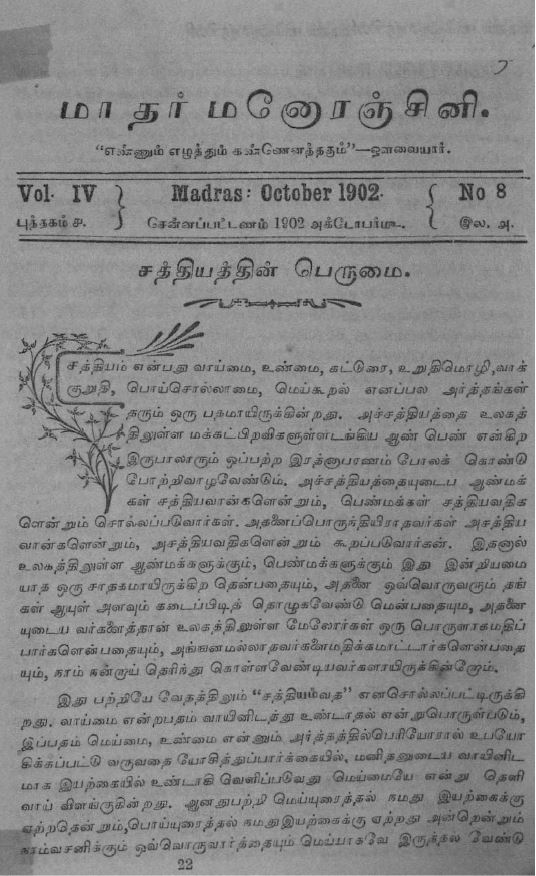 மாதர் மனோரஞ்சினி.
“எண்ணும் எழுத்தும் கண்ணெனத்தகும்”—ஔவையார்.
Vol. IV } Madras: October 1902. { No 8
புத்தகம் ௪. } சென்னப்பட்டணம் 1902 அக்டோபர்மீ { இல. அ.
சத்தியத்தின் பெருமை.
சத்தியம் என்பது வாய்மை, உண்மை, கட்டுரை, உறுதிமொழி, வாக்
குறுதி, பொய்சொல்லாமை, மெய்கூறல் எனப்பல அர்த்தங்கள்
தரும் ஒரு பதமாயிருக்கின்றது. அச்சத்தியத்தை உலகத்
திலுள்ள மக்கட்பிறவிகளுள்ளடங்கிய ஆண் பெண் என்கிற
இருபாலாரும் ஒப்பற்ற இரத்னாபரணம் போலக் கொண்டு
போற்றிவாழவேண்டும். அச்சத்தியத்தையுடைய ஆண்மக்
கள் சத்தியவான்களென்றும், பெண்மக்கள் சத்தியவதிக
ளென்றும் சொல்லப்படுவார்கள். அதனைப்பொருந்தியிராதவர்கள் அசத்திய
வான்களென்றும், அசத்தியவதிகளென்றும் கூறப்படுவார்கள். இதனால்
உலகத்திலுள்ள ஆண்மக்களுக்கும், பெண்மக்களுக்கும் இது இன்றியமை
யாத ஒரு சாதகமாயிருக்கிற தென்பதையும், அதனை ஒவ்வொருவரும் தங்
கள் ஆயுள் அளவும் கடைப்பிடித் தொழுகவேண்டு மென்பதையும், அதனை
யுடைய வர்களைத்தான் உலகத்திலுள்ள மேலோர்கள் ஒரு பொருளாகமதிப்
பார்களென்பதையும், அங்ஙனமல்லாதவர்களைமதிக்கமாட்டார்களென்பதை
யும், நாம் நன்றாய் தெரிந்து கொள்ளவேண்டியவர்களாயிருக்கின்றோம்.
இது பற்றியே வேதத்திலும் “சத்தியம்வத” எனசொல்லப்பட்டிருக்கி
றது. வாய்மை என்றபதம் வாயினிடத்து உண்டாதல் என்றுபொருள்படும்,
இப்பதம் மெய்மை, உண்மை என்னும் அர்த்தத்தில்பெரியோரால் உபயோ
கிக்கப்பட்டு வருவதை யோசித்துப்பார்க்கையில், மனிதனுடைய வாயினிட
மாக இயற்கையில் உண்டாகி வெளிப்படுவது மெய்மையே என்று தெளி
வாய் விளங்குகின்றது. ஆனதுபற்றி மெய்யுரைத்தல் நமது இயற்கைக்கு
ஏற்றதென்றும்,பொய்யுரைத்தல் நமதுஇயற்கைக்கு ஏற்றது அன்றென்றும்
நாம்வசனிக்கும் ஒவ்வொருவார்த்தையும் மெய்யாகவே இருத்தல் வேண்டு
22